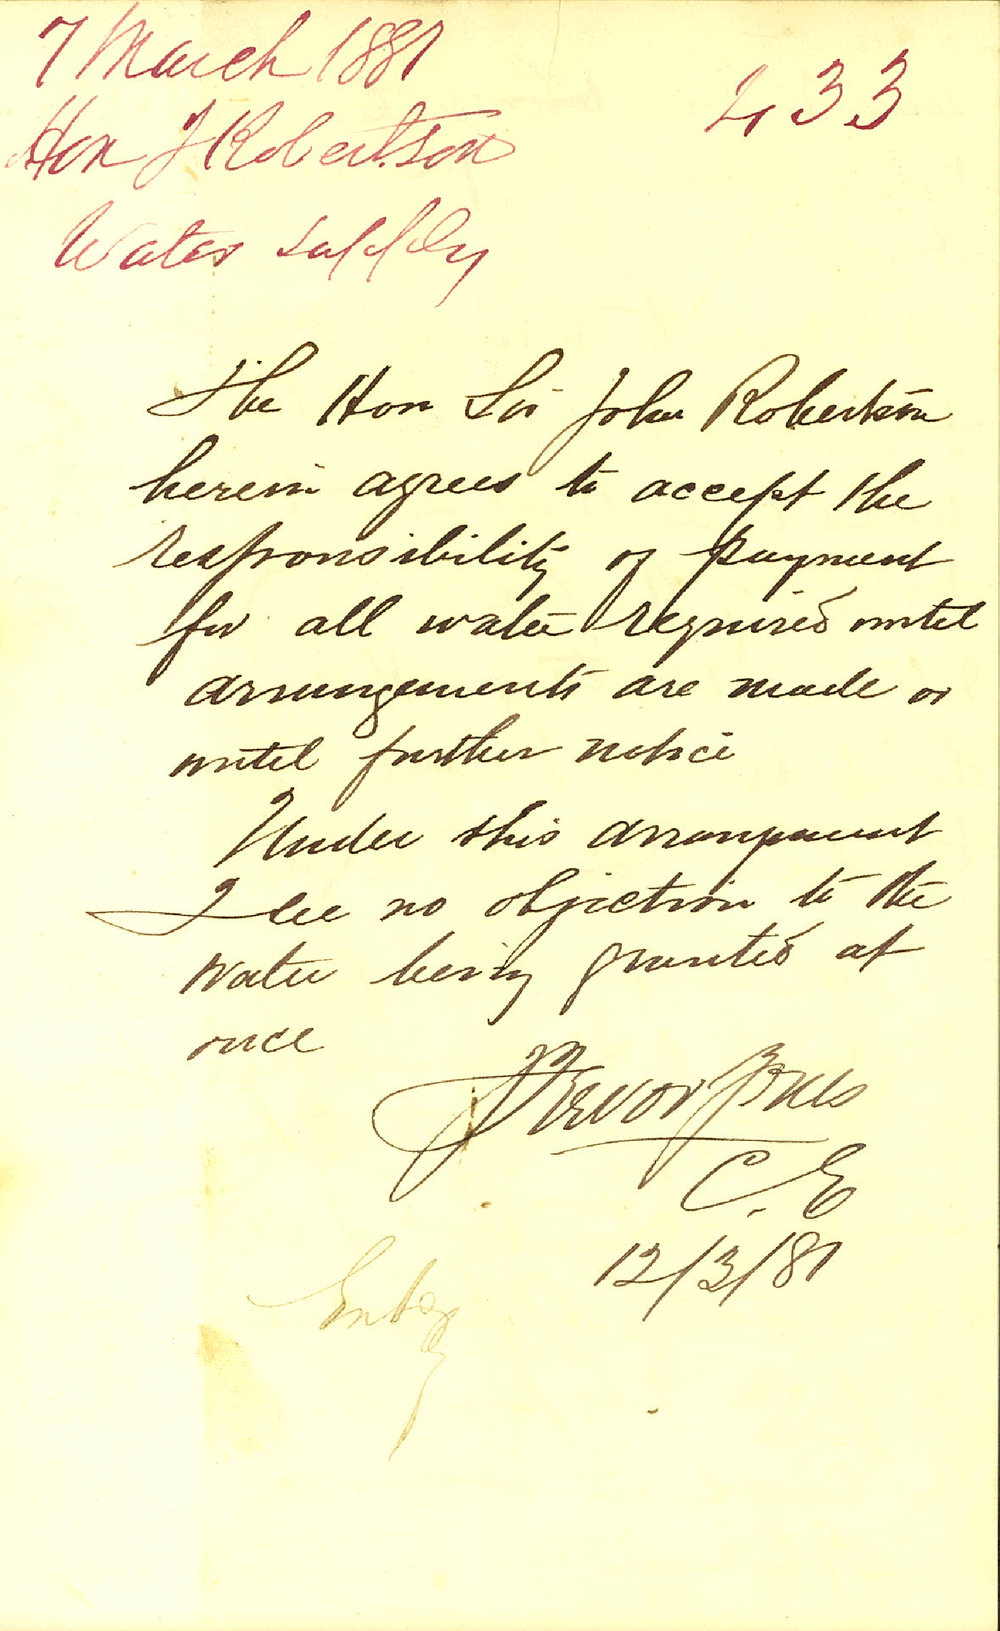 7 March 1881
433
Hon J Robertson
Water supply
The Hon Sir John Robertson
herein agrees to accept the
responsibility of payment
for all water required until
arrangements are made or
until further notice
Under this arrangement
I see no objection to the
water being granted at
once
Trevor Jones
C. E
12/3/81